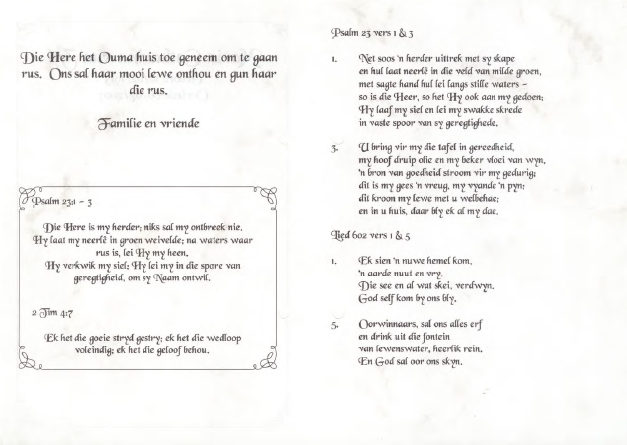 Die Here het Ouma huis toe geneem om te gaan
rus. Ons sal haar mooi lewe onthou en gun haar
die rus.
Familie en vriende
Psalm 23:1 – 3
Die Here is my herder; niks sal my ontbreek nie.
Hy laat my neerlê in groen weivelde; na waters waar
rus is, lei Hy my heen.
Hy verkwik my siel; Hy lei my in die spore van
geregtigheid, om sy Naam ontwil.
2 Tim 4:7
Ek het die goeie stryd gestry; ek het die wedloop
voleindig; ek het die geloof behou.
Psalm 23 vers 1 & 3
1. Net soos 'n herder uittrek met sy skape
en hul laat neerlê in die veld van milde groen,
met sagte hand hul lei langs stille waters –
so is die Heer, so het Hy ook aan my gedoen;
Hy laaf my siel en lei my swakke skrede
in vaste spoor van sy geregtighede.
3. U bring vir my die tafel in gereedheid,
my hoof druip olie en my beker vloei van wyn,
'n bron van goedheid stroom vir my gedurig;
dit is my gees 'n vreug, my vyande 'n pyn;
dit kroon my lewe met u welbehae;
en in u huis, daar bly ek al my dae.
Lied 602 vers 1 & 5
1. Ek sien 'n nuwe hemel kom,
'n aarde nuut en vry.
Die see en al wat skei, verdwyn.
God self kom by ons bly.
5. Oorwinnaars, sal ons alles erf
en drink uit die fontein
van lewenswater, heerlik rein.
En God sal oor ons skyn.